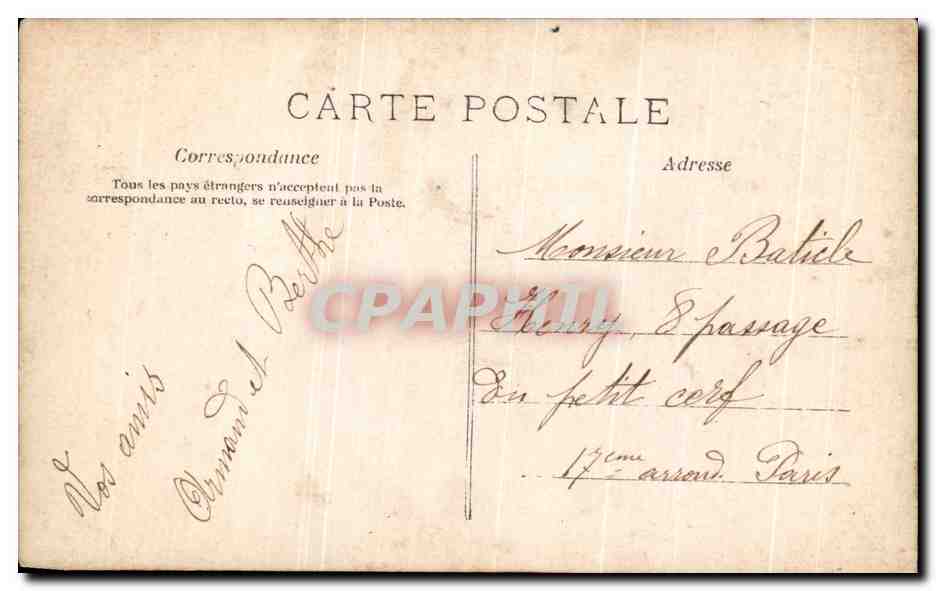 CARTE POSTALE
Correspondance
Tous les pays étrangers n'acceptent pas la
correspondance au recto, se renseigner à la Poste.
Vos amis
Armand et Berthe
Adresse
Monsieur Baticle
Henry, 8 passage
du petit cerf
17eme arrond. Paris
CPAPHIL